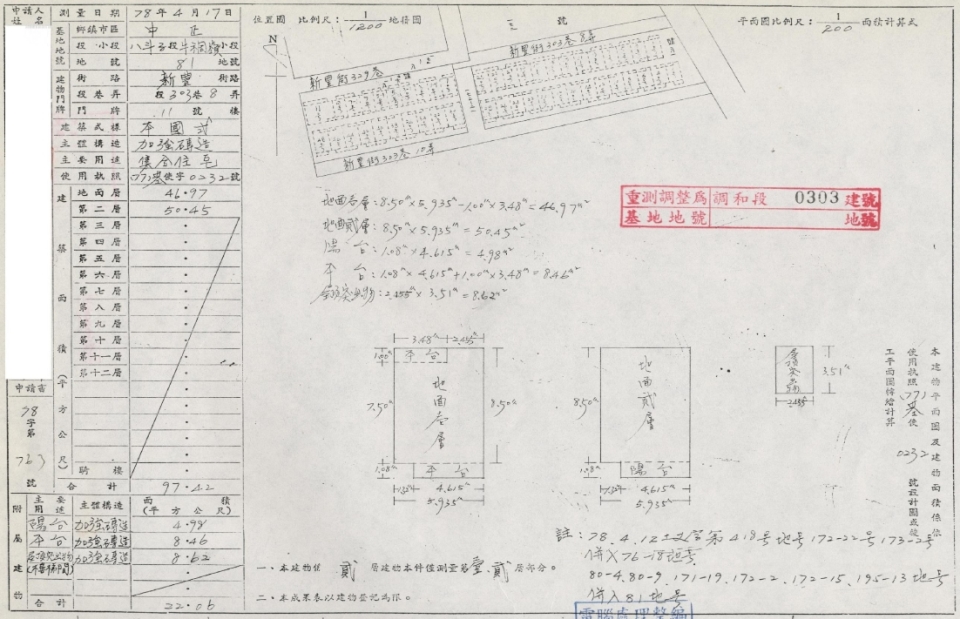 申請人姓名
測量日期 78年4月17日
基地地號
鄉鎮市區 中正
段小段 八斗子段牛稠嶺小段
地號 81 地號
建物門牌
街路 新豐 街路
段巷弄 段303巷8弄
門牌 11 號 樓
建築式樣 本國式
主體構造 加強磚造
主要用途 集合住宅
使用執照 (77)基使字0232號
建築面積(平方公尺)
地面層 46.97
第二層 50.45
第三層
第四層
第五層
第六層
第七層
第八層
第九層
第十層
第十一層
第十二層
騎樓
合計 97.42
申請書
78
字第
763
號
附屬建物
主要用途 主體構造 面積(平方公尺)
陽台 加強磚造 4.98
平台 加強磚造 8.46
加強磚造 8.62
合計 22.06
位置圖 比例尺:1/1200 地積圖
N
三 號
新豐街329巷
新豐街303巷8弄
新豐街303巷10弄
平面圖比例尺:1/200 面積計算式
地面壹層:8.50M×5.935M-1.00M×3.48M=46.97M²
地面貳層:8.50M×5.935M=50.45M²
陽台:1.08M×4.615M=4.98M²
平台:1.08M×4.615M+1.00M×3.48M=8.46M²
屋頂突出物:2.455M×3.51M=8.62M²
重測調整為 調和段 0303 建號
基地地號 地號
3.48M 2.455M
1.00M 平台
7.50M 地面壹層 8.50M
1.08M 平台
1.32M 4.615M
5.935M
8.50M 地面貳層
1.08M 陽台
1.32M 4.615M
5.935M
屋頂突出物 3.51M
2.455M
本建物平面圖及建物面積係依
使用執照(77)基使 0232 號設計圖或竣
工平面圖轉繪計算
註:78.4.12 字第418号地号172-22号173-2号
併入76-18地号
80-4.80-9、171-19、172-2、172-15、195-13地号
併入81地号
一、本建物係 貳 層建物本件僅測量第壹、貳層部分。
二、本成果表以建物登記為限。
電腦處理整編